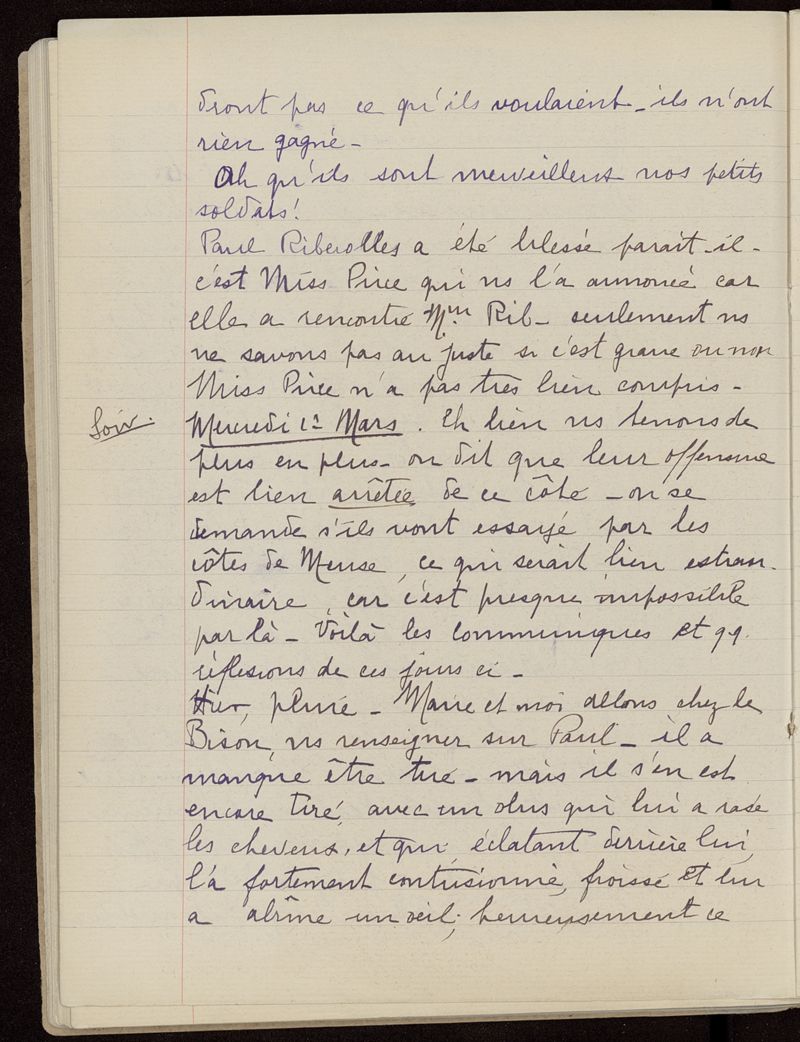 dront pas ce qu'ils voulaient - ils n'ont
rien gagné -
Oh qu'ils sont merveilleux nos petits
soldats!
Paul Riberolles a été blessé parait-il -
c'est Miss Price qui ns l'a annoncé car
elle a rencontré Mme Rib - seulement ns
ne savons pas au juste si c'est grave ou non
Miss Price n'a pas très bien compris -
Soir.
Mercredi 1er Mars. Eh bien ns tenons de
plus en plus - on dit que leur offensive
est bien arrêtée de ce côté - on se
demande s'ils vont essayé par les
côtes de Meuse, ce qui serait bien extraor-
dinaire, car c'est presque impossible
par là - Voilà les communiqués et qq.
réflexions de ces jours ci -
Hier, pluie - Marie et moi allons chez le
Bison, ns renseigner sur Paul - il a
manqué être tué - mais il s'en est
encore tiré, avec un obus qui lui a rasé
les cheveux, et qui éclatant derrière lui,
l'a fortement contusionné, froissé et lui
a abîmé un œil; heureusement ce